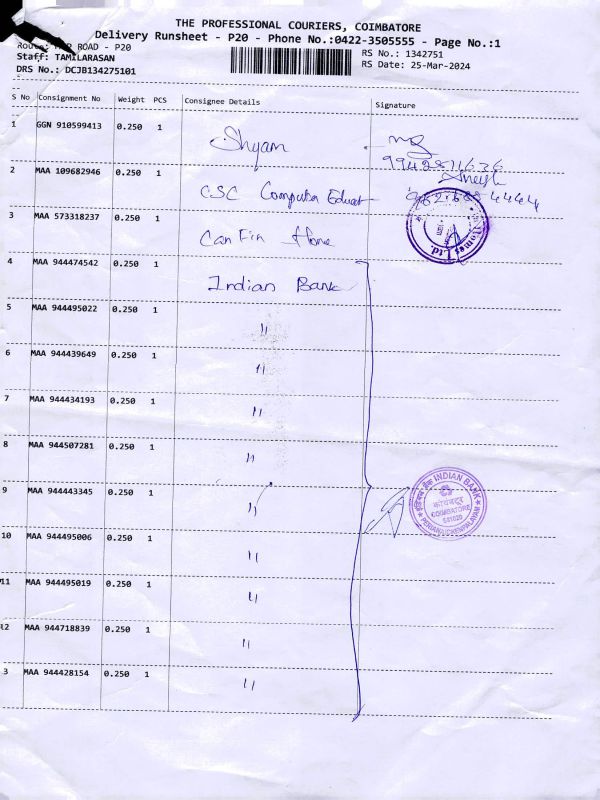 THE PROFESSIONAL COURIERS, COIMBATORE
Delivery Runsheet - P20 - Phone No.:0422-3505555 - Page No.:1
ROAD - P20
RS No.: 1342751
Staff: TAMILARASAN
RS Date: 25-Mar-2024
DRS No.: DCJB134275101
S No Consignment No Weight PCS Consignee Details Signature
1 GGN 910599413 0.250 1 Shyam
2 MAA 109682946 0.250 1 CSC Computer Educat
3 MAA 573318237 0.250 1 Can Fin Home
Homes Ltd.
4 MAA 944474542 0.250 1 Indian Bank
5 MAA 944495022 0.250 1 "
6 MAA 944439649 0.250 1 "
7 MAA 944434193 0.250 1 "
8 MAA 944507281 0.250 1 "
9 MAA 944443345 0.250 1 "
इंडियन बैंक INDIAN BANK
कोयंबटूर
COIMBATORE
641020
PERIANAICKENPALAYAM
10 MAA 944495006 0.250 1 "
11 MAA 944495019 0.250 1 "
12 MAA 944718839 0.250 1 "
3 MAA 944428154 0.250 1 "